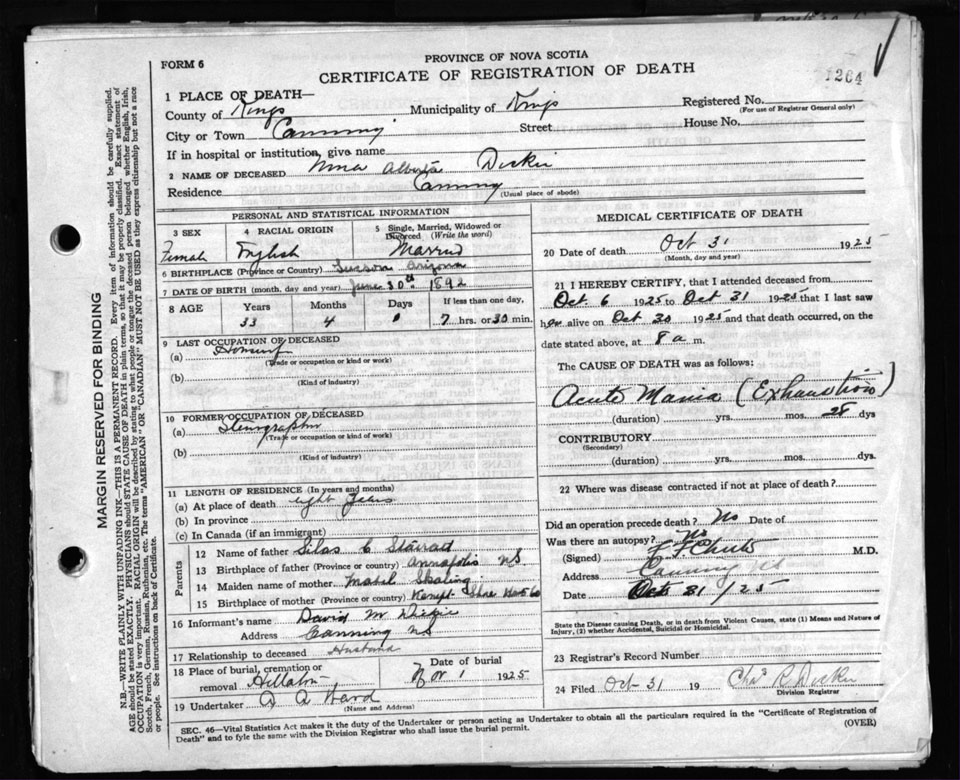 FORM 6
PROVINCE OF NOVA SCOTIA
CERTIFICATE OF REGISTRATION OF DEATH
1264
1 PLACE OF DEATH—
County of Kings Municipality of Kings Registered No.
(For use of Registrar General only)
City or Town Canning Street House No.
If in hospital or institution, give name
2 NAME OF DECEASED Nina Alberta Dickie
Residence Canning
(Usual place of abode)
PERSONAL AND STATISTICAL INFORMATION
3 SEX 4 RACIAL ORIGIN 5 Single, Married, Widowed or Divorced (Write the word)
Female English Married
6 BIRTHPLACE (Province or Country) Tucson Arizona
7 DATE OF BIRTH (month, day and year) June 30th 1892
8 AGE Years Months Days If less than one day,
33 4 0 7 hrs. or 30 min.
9 LAST OCCUPATION OF DECEASED
(a)
(Trade or occupation or kind of work)
(b)
(Kind of industry)
10 FORMER OCCUPATION OF DECEASED
(a) Stenographer
(Trade or occupation or kind of work)
(b)
(Kind of industry)
11 LENGTH OF RESIDENCE (In years and months)
(a) At place of death eight years
(b) In province
(c) In Canada (if an immigrant)
Parents
12 Name of father Silas C
13 Birthplace of father (Province or country) Annapolis NS
14 Maiden name of mother Mabel
15 Birthplace of mother (Province or country) Kempt Shore Hants Co
16 Informant's name David M Dickie
Address Canning NS
17 Relationship to deceased Husband
18 Place of burial, cremation or removal Hillaton Date of burial Nov 1 1925
19 Undertaker Ward
(Name and Address)
MEDICAL CERTIFICATE OF DEATH
20 Date of death Oct 31 1925
(Month, day and year)
21 I HEREBY CERTIFY, that I attended deceased from
Oct 6 1925 to Oct 31 1925 that I last saw
her alive on Oct 30 1925 and that death occurred, on the
date stated above, at 8 a m.
The CAUSE OF DEATH was as follows:
Acute Mania (Exhaustion)
(duration) yrs. mos. 28 dys
CONTRIBUTORY
(Secondary)
(duration) yrs. mos. dys.
22 Where was disease contracted if not at place of death?
Did an operation precede death? No Date of
Was there an autopsy? No
(Signed) F F Chute M.D.
Address Canning NS
Oct 31/25
State the Disease causing Death, or in death from Violent Causes, state (1) Means and Nature of Injury, (2) whether Accidental, Suicidal or Homicidal.
23 Registrar's Record Number
24 Filed Oct 31 19 Chas R Dickie
Division Registrar
SEC. 46—Vital Statistics Act makes it the duty of the Undertaker or person acting as Undertaker to obtain all the particulars required in the "Certificate of Registration of
Death" and to fyle the same with the Division Registrar who shall issue the burial permit. (OVER)
MARGIN RESERVED FOR BINDING
N.B.—WRITE PLAINLY WITH UNFADING INK—THIS IS A PERMANENT RECORD. Every item of information should be carefully supplied.
AGE should be stated EXACTLY. PHYSICIANS should STATE CAUSE OF DEATH in plain terms, so that it may be properly classified. Exact statement of
OCCUPATION is very important. RACIAL ORIGIN will be described by stating to what people or tongue the deceased person belonged whether English, Irish,
Scotch, French, German, Russian, Ruthenian, etc. The terms "AMERICAN" OR "CANADIAN" MUST NOT BE USED as they express citizenship but not a race
or people. See instructions on back of Certificate.